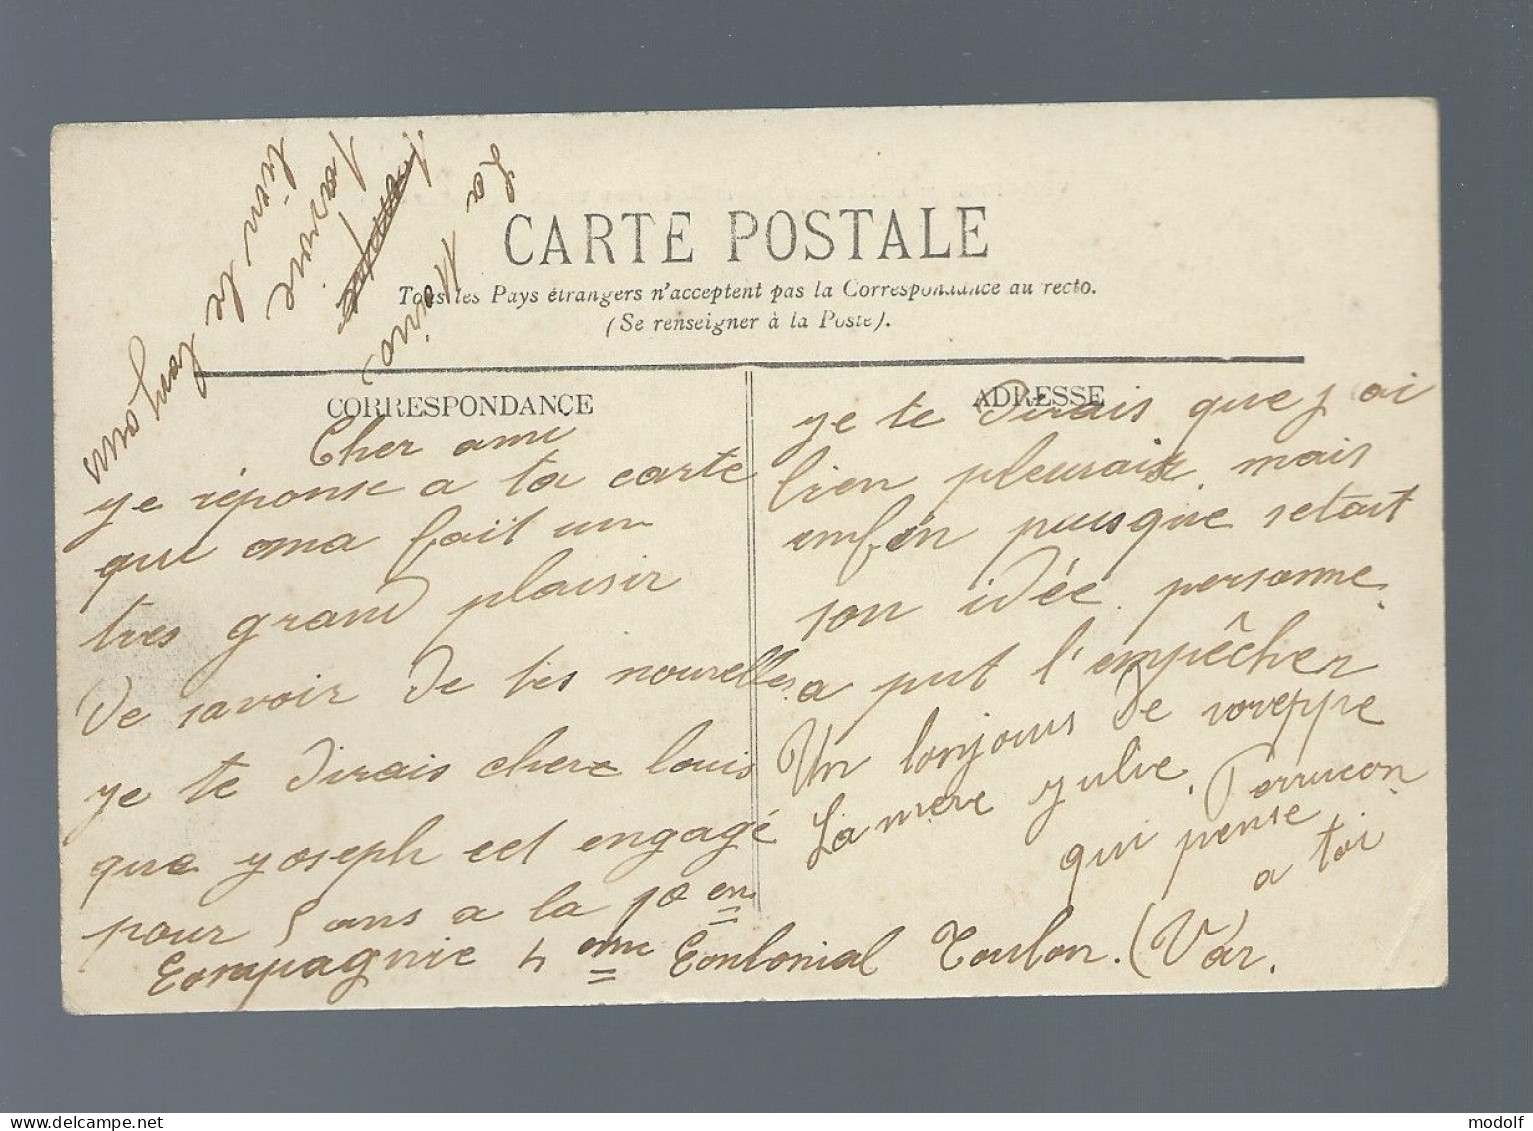 CARTE POSTALE
Tous les Pays étrangers n'acceptent pas la Correspondance au recto.
(Se renseigner à la Poste).
CORRESPONDANCE
ADRESSE
Cher ami
ye réponse a ta carte
qui ma fait un
tres grand plaisir
De savoir De tes nouvelles
ye te Dirais chere louis
que yoseph eet engagé
pour 5 ans a la 10 em
Compagnie 4 eme Conlonial Toulon. (Var.
ye te Dirais que j ai
bien pleurais mais
enfin puisque setait
son idée personne
a put l'empêcher
Un bonjours De voreppe
La mere yulie Perrucon
qui pense
a toi
La